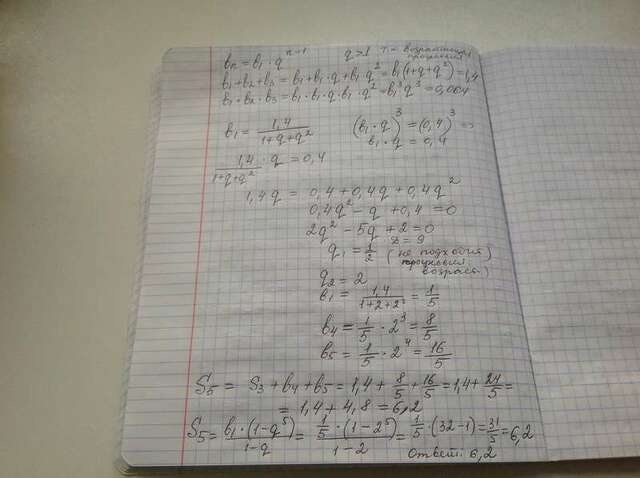 bn = b₁ · qⁿ⁻¹ q > 1 т.к. возрастающая прогрессия
b₁ + b₂ + b₃ = b₁ + b₁ · q + b₁ q² = b₁(1+q+q²) = 1,4
b₁ · b₂ · b₃ = b₁ · b₁ · q · b₁ · q² = b₁³ q³ = 0,064
b₁ = 1,4/(1+q+q²) (b₁ · q)³ = (0,4)³ =>
b₁ · q = 0,4
1,4/(1+q+q²) · q = 0,4
1,4q = 0,4 + 0,4q + 0,4q²
0,4q² - q + 0,4 = 0
2q² - 5q + 2 = 0
D = 9
q₁ = 1/2 (не подходит, прогрессия возраст.)
q₂ = 2
b₁ = 1,4/(1+2+2²) = 1/5
b₄ = 1/5 · 2³ = 8/5
b₅ = 1/5 · 2⁴ = 16/5
S₅ = S₃ + b₄ + b₅ = 1,4 + 8/5 + 16/5 = 1,4 + 24/5 =
= 1,4 + 4,8 = 6,2
S₅ = b₁ · (1-q⁵)/(1-q) = 1/5 · (1-2⁵)/(1-2) = 1/5 · (32-1) = 31/5 = 6,2
Ответ: 6,2